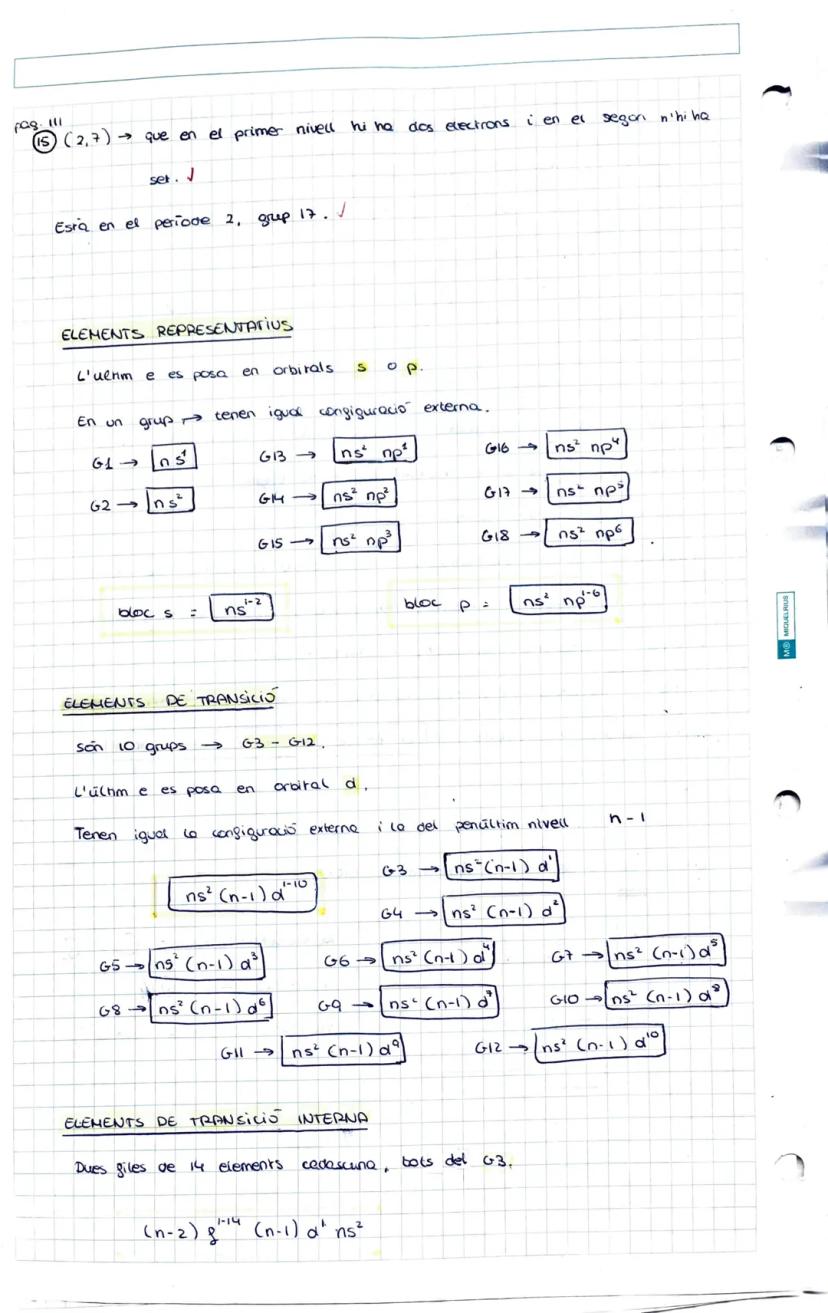 pag. 111
15 (2,7) → que en el primer nivell hi ha dos electrons i en el segon n'hi ha
set. ✓
Està en el període 2, grup 17. ✓
ELEMENTS REPRESENTATIUS
L'últim e es posa en orbitals s o p.
En un grup → tenen igual configuració externa.
G1 → ns¹ G13 → ns² np¹ G16 → ns² np⁴
G2 → ns² G14 → ns² np² G17 → ns² np⁵
G15 → ns² np³ G18 → ns² np⁶.
bloc s = ns¹⁻² bloc p = ns² np¹⁻⁶
M MIQUELRIUS
ELEMENTS DE TRANSICIÓ
són 10 grups → G3 - G12.
L'últim e es posa en orbital d.
Tenen igual la configuració externa i la del penúltim nivell n-1
G3 → ns² (n-1) d¹
ns² (n-1) d¹⁻¹⁰
G4 → ns² (n-1) d²
G5 → ns² (n-1) d³ G6 → ns² (n-1) d⁴ G7 → ns² (n-1) d⁵
G8 → ns² (n-1) d⁶ G9 → ns² (n-1) d⁷ G10 → ns² (n-1) d⁸
G11 → ns² (n-1) d⁹ G12 → ns² (n-1) d¹⁰
ELEMENTS DE TRANSICIÓ INTERNA
Dues files de 14 elements cadascuna, tots del G3.
(n-2) f¹⁻¹⁴ (n-1) d¹ ns²